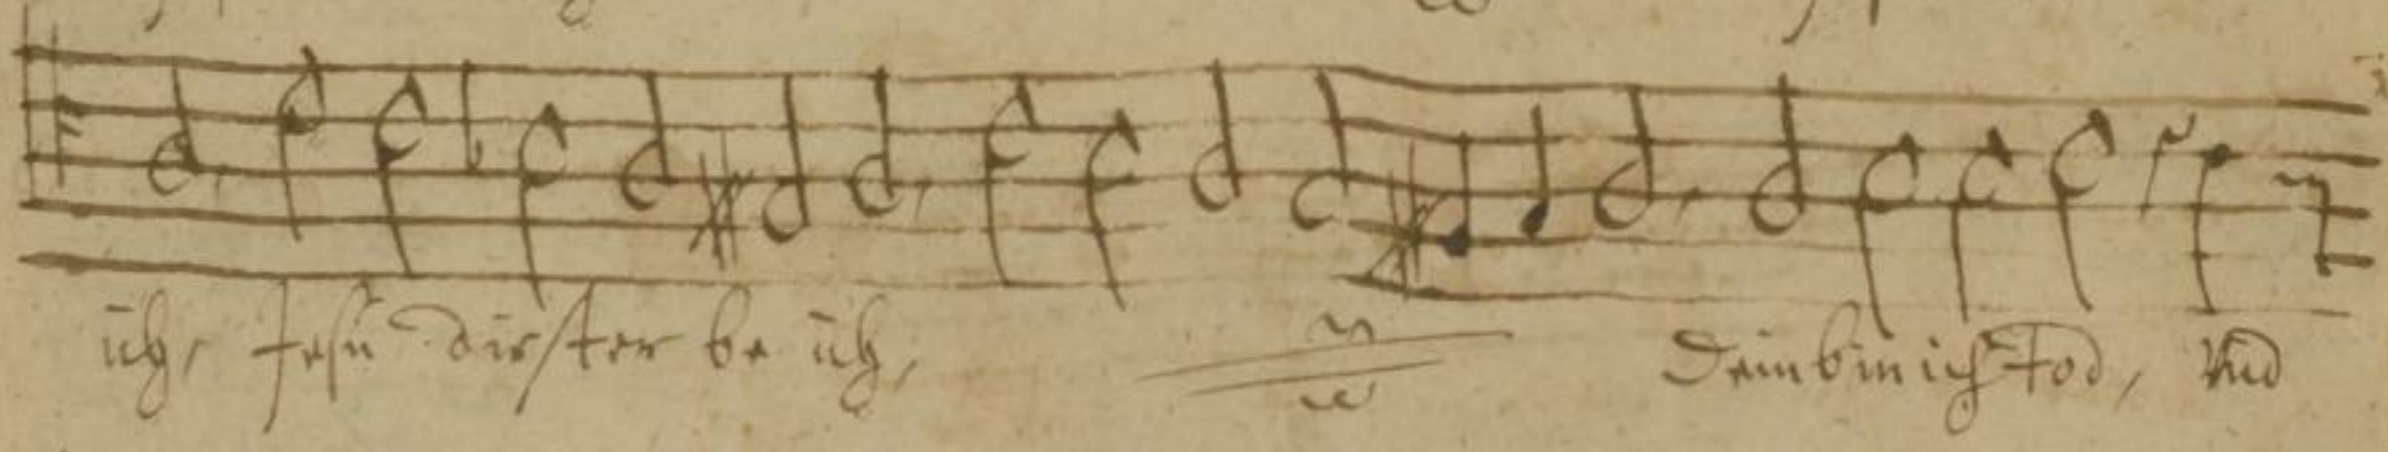 ich, Jesu dir sterbe ich,
Dein bin ich Tod, und